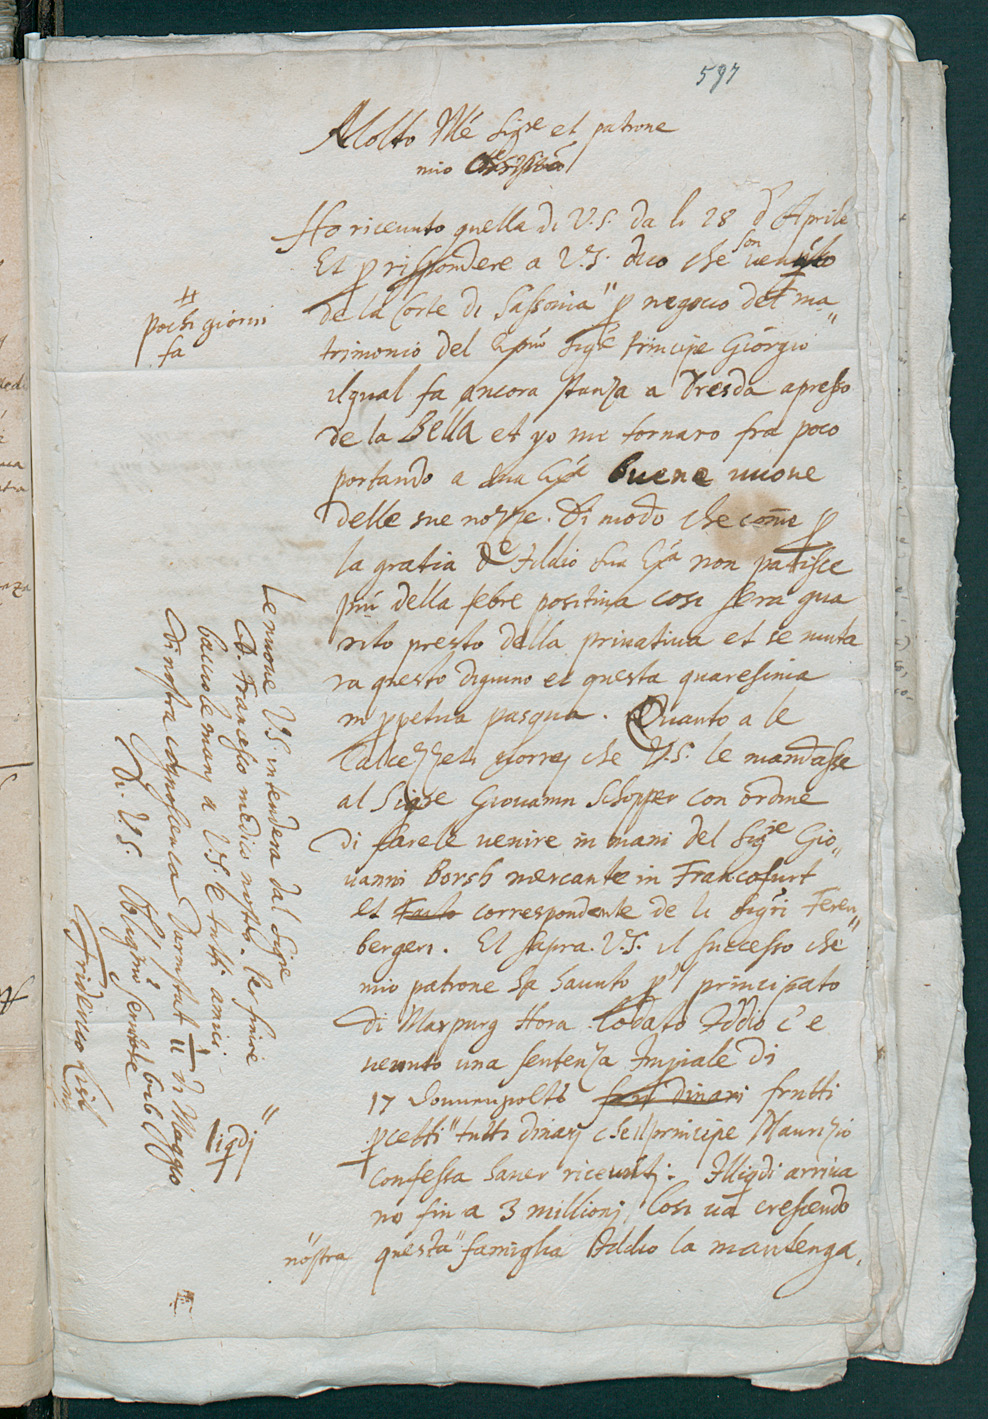 597
Molto Ill.e Sig.re et patrone
mio
Ho riceuuto quella di V.S. da li 28 d' Aprile
Et p rispondere a V.S. dico che son venuto
#
pochi giorni
fa
de la Corte di Sassonia p negocio del ma
trimonio del Sig.re Principe Giorgio
ilqual fa ancora stanza a Dresda apresso
de la Bella et yo me tornaro fra poco
portando a sua buene nuoue
delle sue nozze. Di modo che come p
la gratia de Iddio sua non patisce
piu della febre positiua cosi sera gua
rito presto della priuatiua et se muta
ra questo digiuno et questa quaresima
in ppetua pasqua. Quanto a le
che V.S. le mandasse
al Sig.re Giouanni Schopper con ordine
di farele uenire in mani del Sig.re Gio
uanni Borsh mercante in Francofurt
et correspondente de li Sig.ri Feren
bergeri. Et sapra V.S. il successo che
mio patrone ha hauuto p'l principato
di Marpurg Hora lodato Iddio c'e
uenuto una sentenza Impiale di
17 fruti dinari frutti
pcetti tutti dinarj che il principe Mauritio
liqdj
confessa hauer riceuutj: Illiqdi arriua
no fin a 3 millionj Cosi ua crescendo
nostra
questa famiglia Iddio la mantenga.
Le nuoue V.S. intendera dal Sig.re
D. Francesco medico nostro. Per finire
baccio le mani a V.S. e tutti amici
di nostra cognoscenca Darmstat di Maggio
Di. V.S.